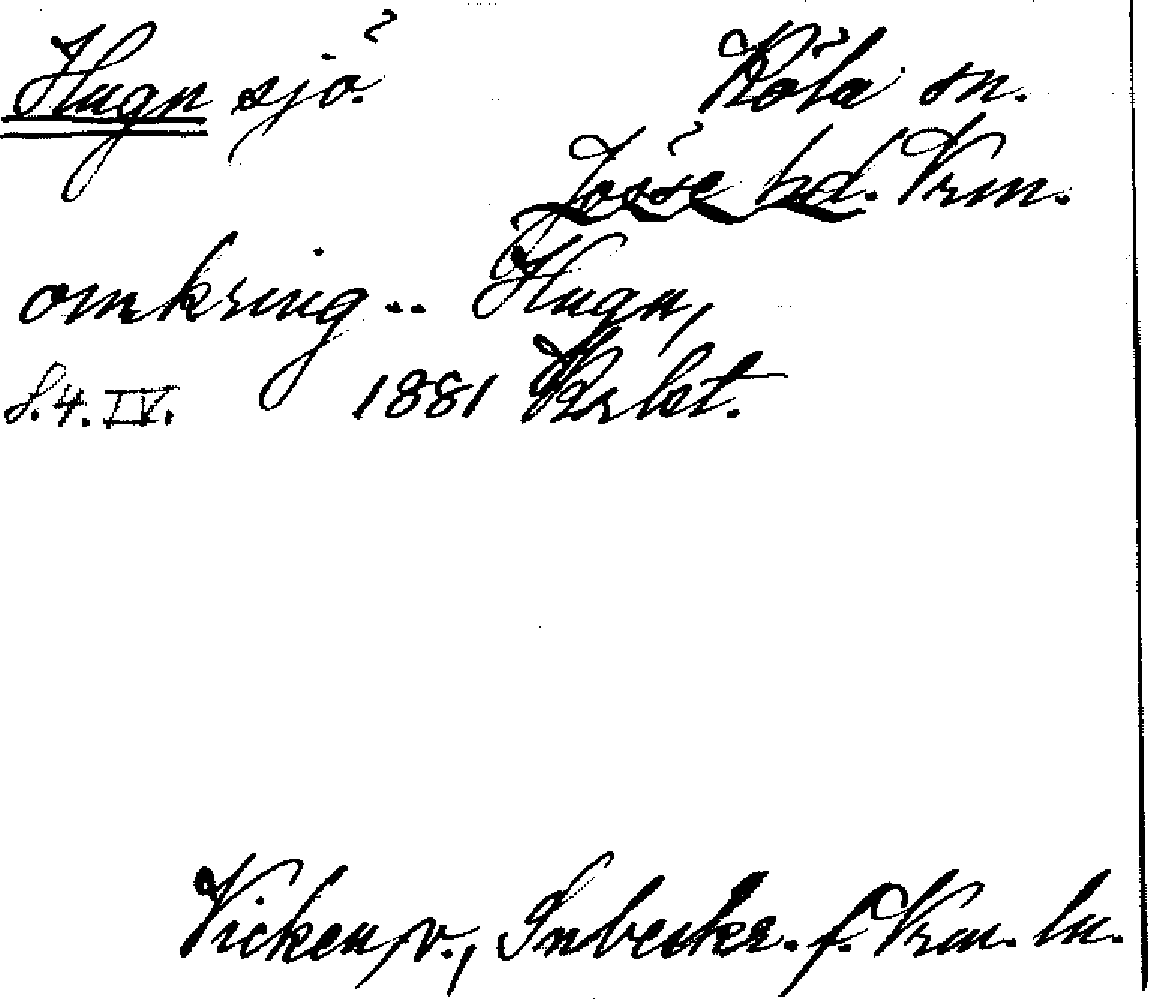 Hugn sjö. Köla sn.
Jösse hd. Vrm.
omkring .. Hugn,
S.4.IV. 1881 Krbt.
Vicken, v., Snbeskr. f. Vrm. ln.